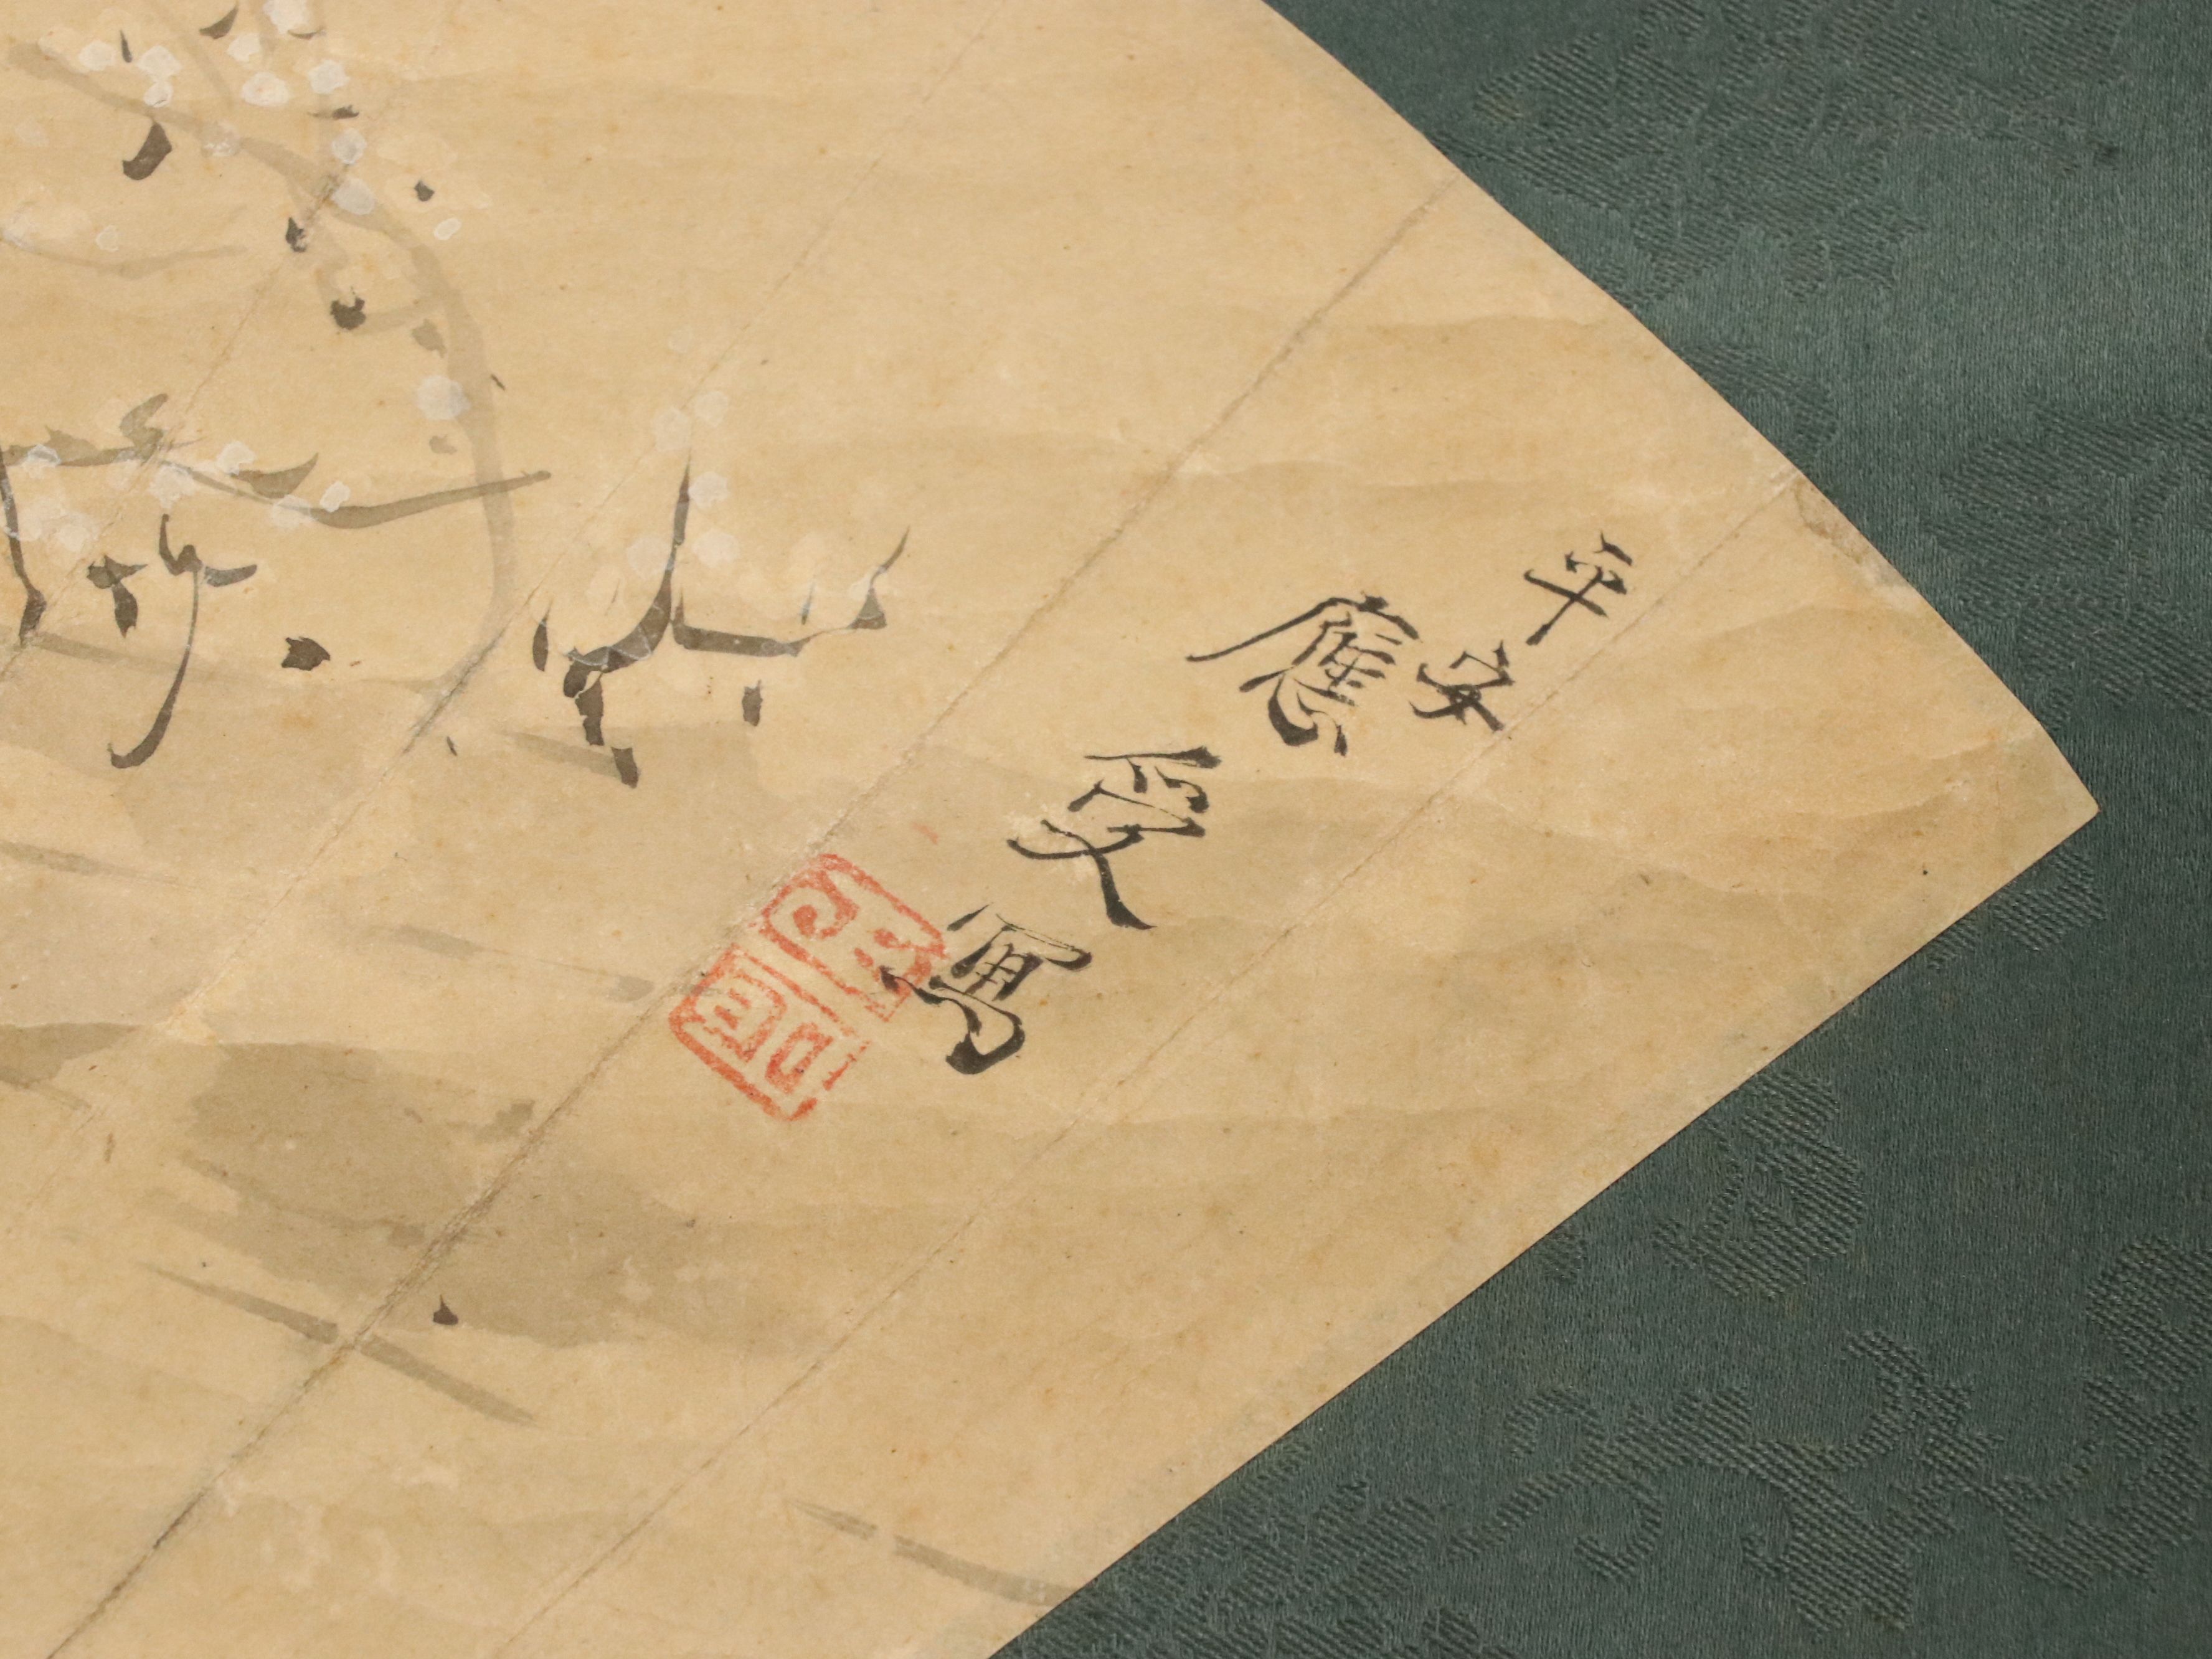 平安
應受寫